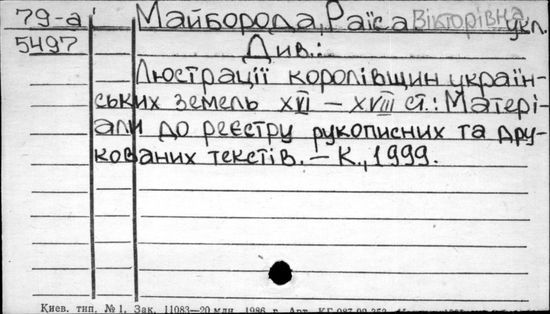 79-а Майборода, Раїса Вікторівна укл.
5497 Див.:
Люстрації королівщин україн-
ських земель XVI – XVIII ст.: Матері-
али до реєстру рукописних та дру-
кованих текстів. – К., 1999.
Киев. тип. № 1. Зак. 11083—20 млн. 1986 г.